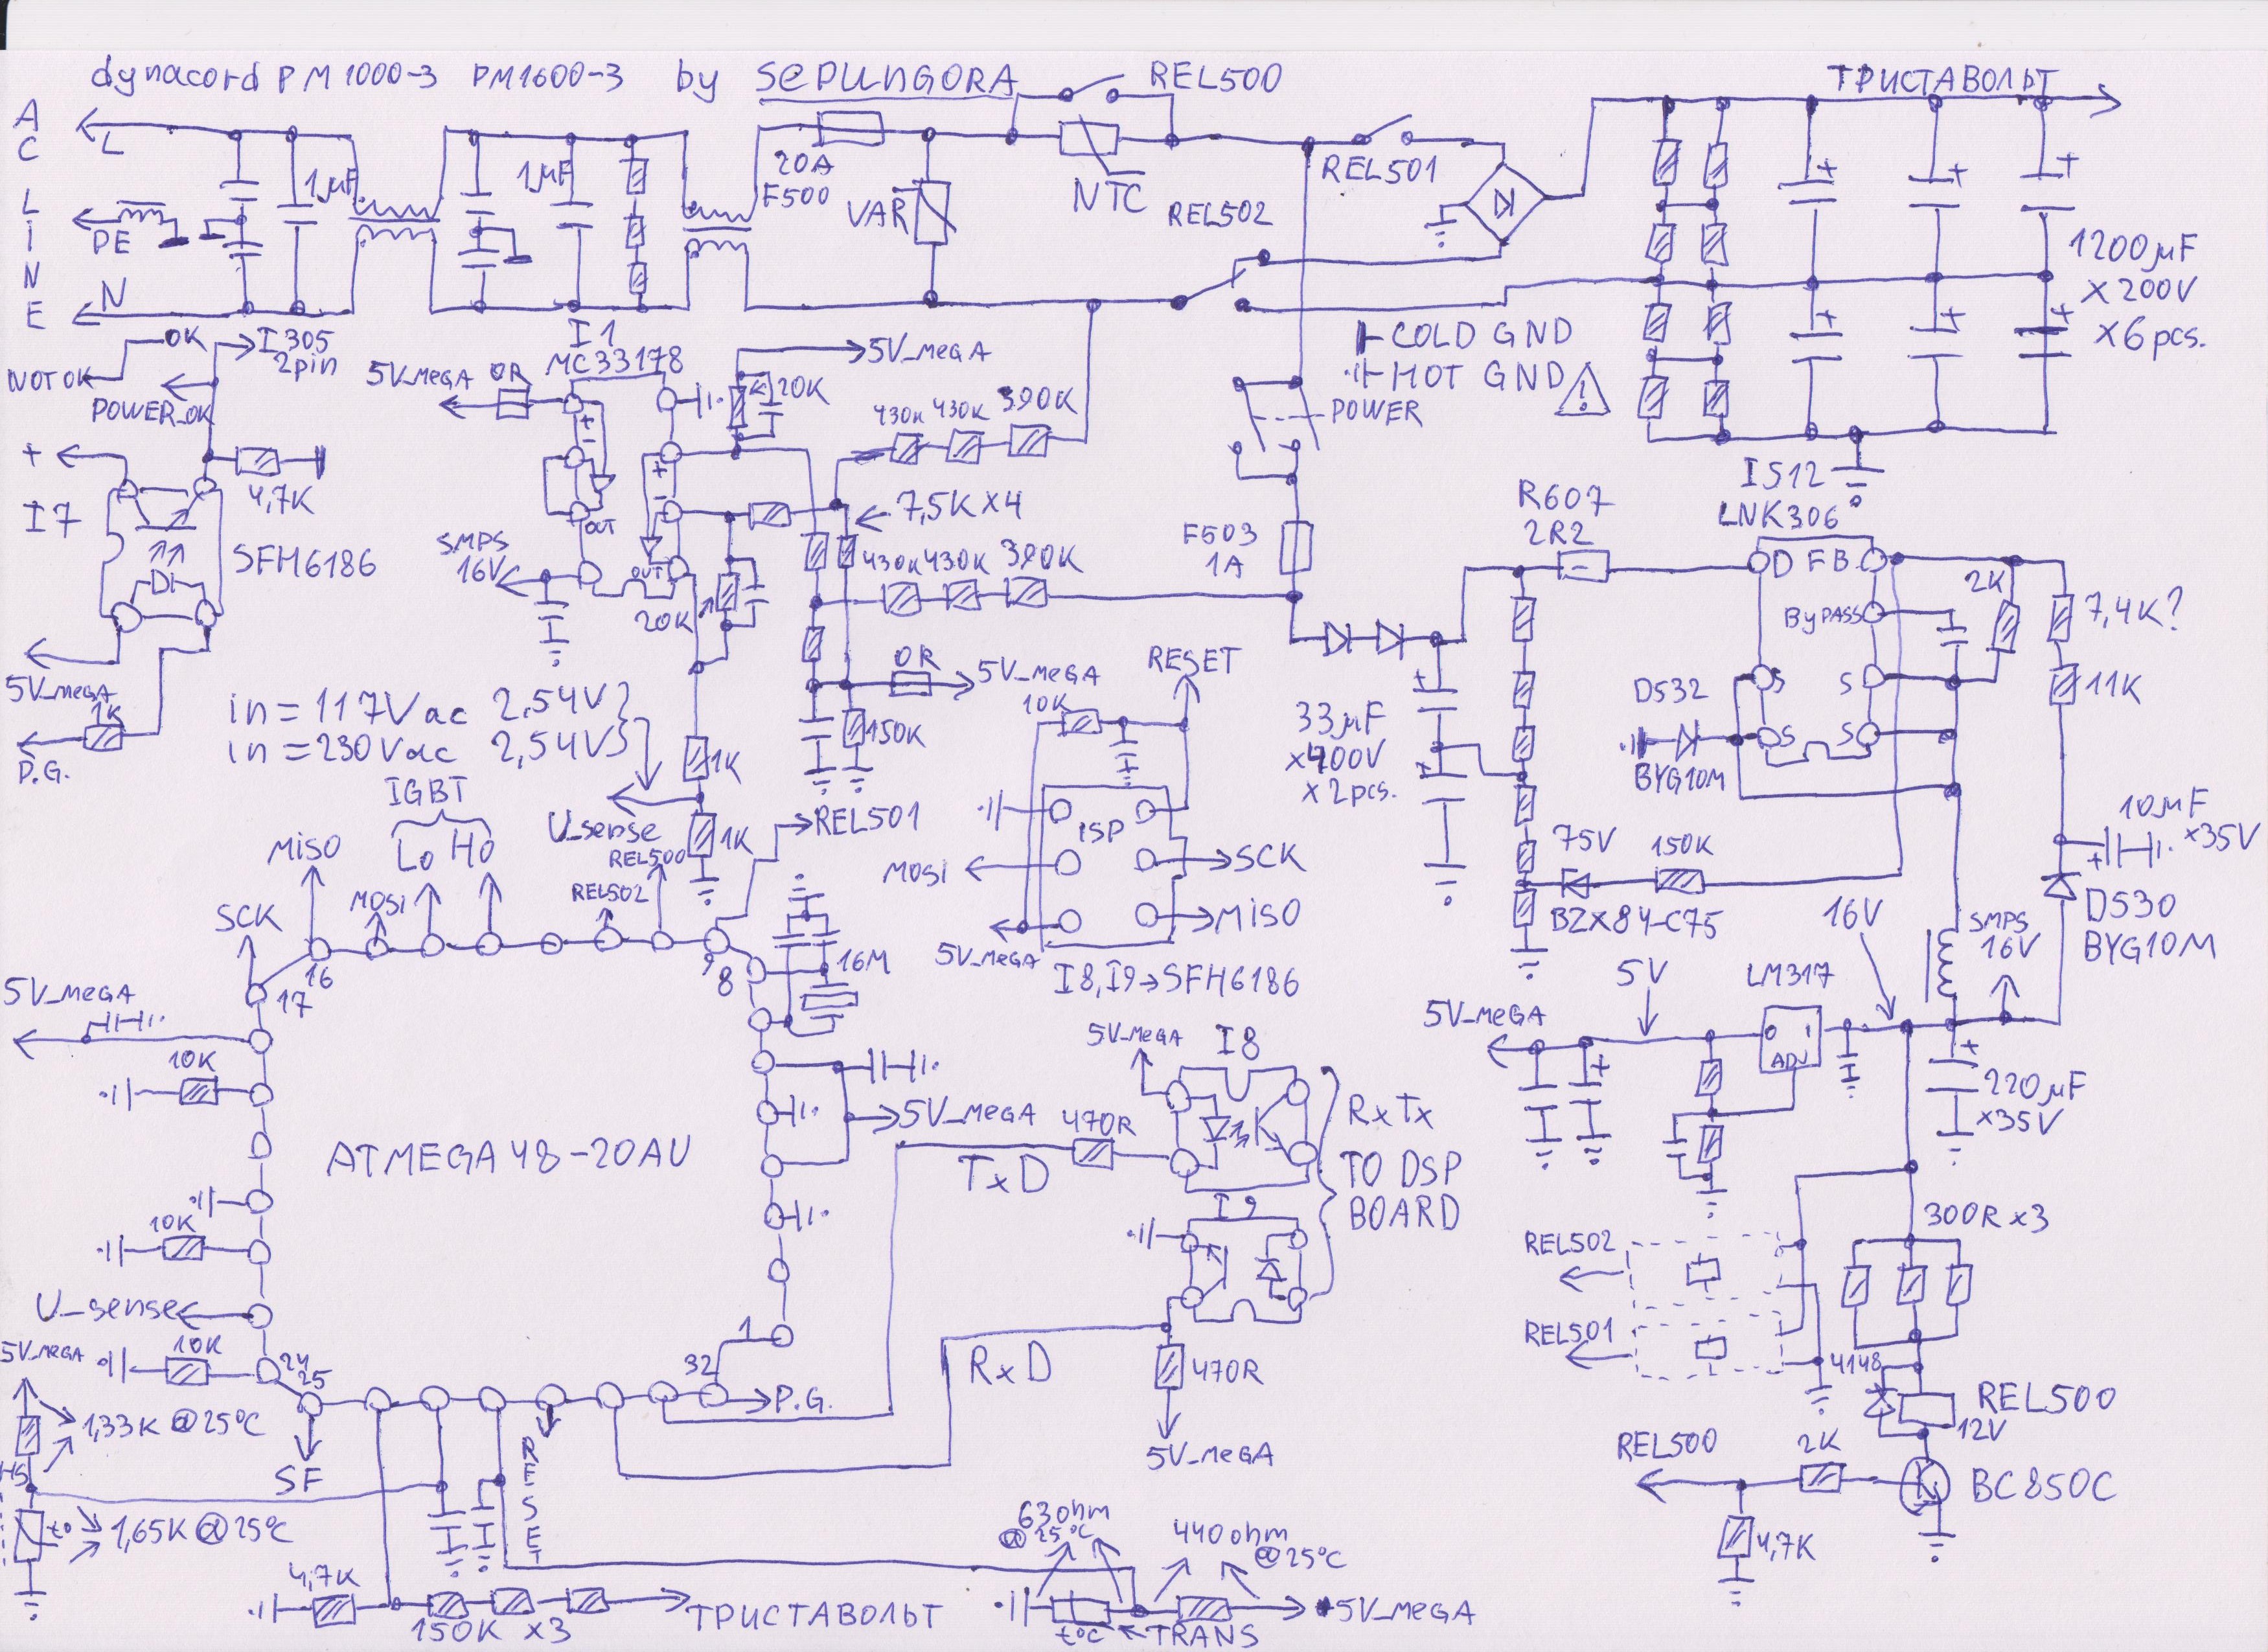 dynacord PM1000-3 PM1600-3 by SEPUNGORA
REL500
ТРИСТАВОЛЬТ
AC LiNE
L
PE
N
1µF
1µF
20A
F500
VAR
NTC
REL501
REL502
1200µF
X 200V
X 6pcs.
COLD GND
HOT GND
POWER
OK
NOT OK
POWER_OK
I305
2pin
I1
MC33178
5V_MEGA
0R
5V_MEGA
20K
430K 430K 390K
+
4,7K
I7
SFH6186
Di
5V_MEGA
1K
P.G.
SMPS
16V
OUT
OUT
20K
7,5K X4
430K 430K 390K
0R
5V_MEGA
150K
in = 117Vac 2,54V
in = 230Vac 2,54V
1K
U_sense
1K
F503
1A
R607
2R2
I512
LNK306
D
FB
ByPASS
S
S
S
S
2K
7,4K?
11K
D532
BYG10M
33µF
x400V
x2pcs.
75V
150K
BZX84-C75
10µF
x35V
D530
BYG10M
RESET
10K
iSP
MOSi
SCK
MiSO
5V_MEGA
I8,I9→SFH6186
IGBT
Lo Ho
MiSO
MOSi
SCK
REL502
REL500
REL501
16
17
9
8
16M
5V_MEGA
10K
10K
U_sense
10K
24
25
ATMEGA48-20AU
5V_MEGA
1
32
P.G.
SF
RESET
TxD
470R
5V_MEGA
I8
I9
RxTx
TO DSP
BOARD
RxD
470R
5V_MEGA
5V_MEGA
5V
LM317
0
1
ADJ
16V
SMPS
16V
220µF
x35V
300R x3
REL502
REL501
4148
REL500
12V
REL500
2K
BC850C
4,7K
5V_MEGA
1,33K @25°C
HS
t°
1,65K @25°C
4,7K
150K X3
ТРИСТАВОЛЬТ
630hm
@25°C
440 ohm
@25°C
t°c
TRANS
5V_MEGA